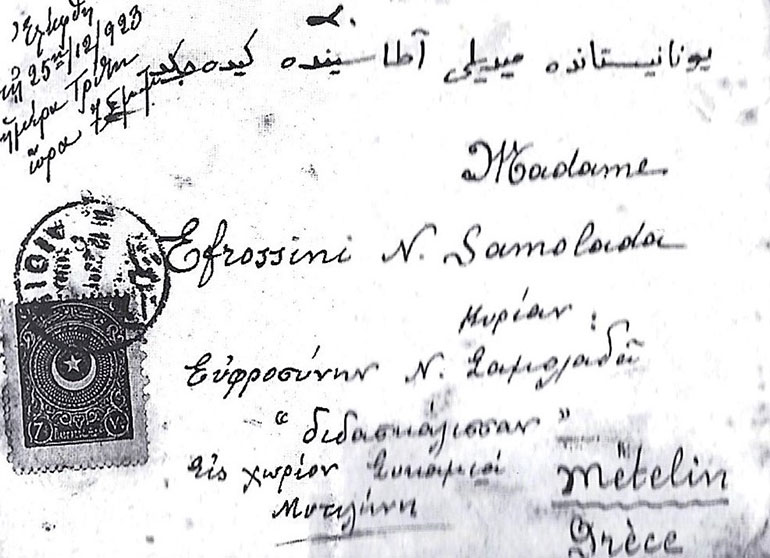 Ἐλήφθη
τῇ 25ῃ/12/923
ἡμέρα Τρίτη
ὥρα 7
يونانيستانده ميديللى آطه سينده كيده جكدر
Madame
Efrossini N. Samolada
Κυρίαν :
Εὐφροσύνην Ν. Σαμολαδᾶ
“διδασκάλισσαν”
Εἰς χωρίον Συκαμιά
Μυτιλήνη
Mételin
Grèce
7